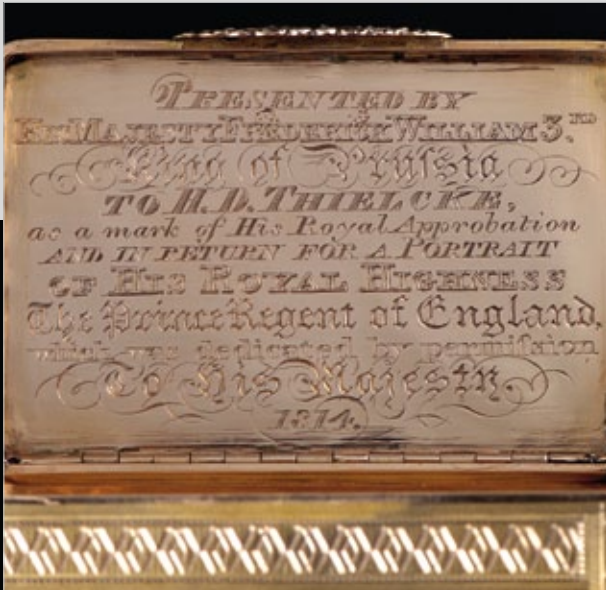 PRESENTED BY
HIS MAJESTY FREDERICK WILLIAM 3.RD
King of Prufsia
TO H. D. THIELCKE,
as a mark of His Royal Approbation
AND IN RETURN FOR A PORTRAIT
OF HIS ROYAL HIGHNESS
The Prince Regent of England,
which was dedicated by permifsion
To His Majesty.
1814.